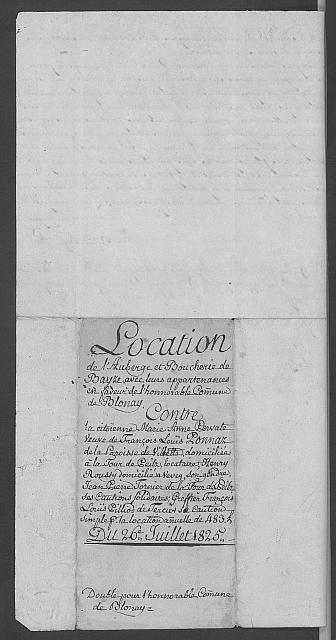 Location
de l'Auberge et Boucherie de
avec leurs appartenances
en faveur de l'honnorable Comune
de Blonay.
Contre
la citoienne Marie Anne
Veuve de François Louïs Ponnaz
de la Paroisse de domiciliée
à la Tour de Peilz, locataire; Henry
domicilié à Vevey, son
Jean Pierre de la Tour de Peilz
ses Cautions Solidaires, François
Louïs de sa Caution
simple p. la location anuelle de 483 L
Du 26e Juillet 1825.
Double pour l'honnorable Comune
de Blonay =